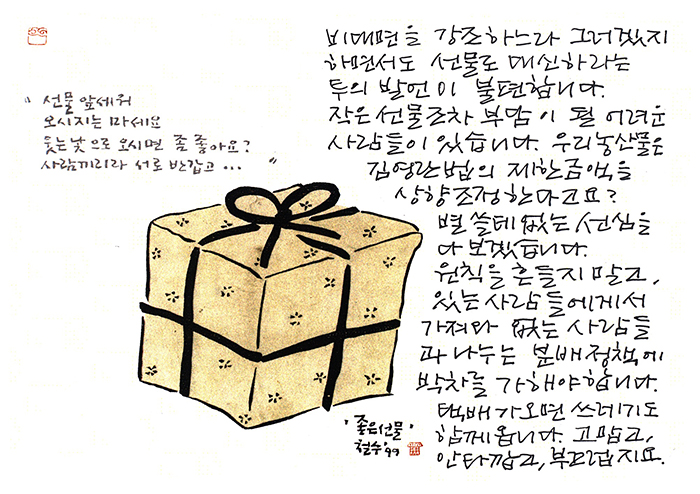 " 선물 앞세워
오시지는 마세요
웃는 낯으로 오시면 좀 좋아요?
사람끼리라 서로 반갑고 ... "
비대면을 강조하느라 그러겠지
하면서도 선물로 대신하라는
투의 발언이 불편합니다.
작은 선물조차 부담이 될 어려운
사람들이 있습니다. 우리농산물은
김영란법의 제한금액을
상향조정한다고요?
별 쓸데없는 선심을
다 보겠습니다.
원칙을 흔들지 말고,
있는 사람들에게서
가져와 없는 사람들
과 나누는 분배정책에
박차를 가해야합니다.
택배가 오면 쓰레기도
함께 옵니다. 고맙고,
안타깝고, 부끄럽지요.
"좋은선물"
철수 '99